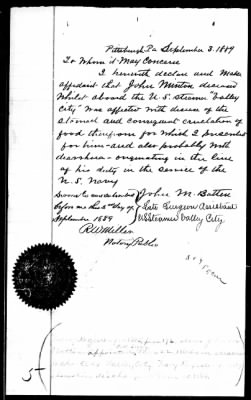 Pittsburgh Pa September 3. 1889
To Whom it May Concern
I herewith declare and make
affidavit that John Minton deceased
Whilst aboard the U. S. Steamer "Valley
City" was affected with disease of the
stomach and consequent
food therefrom for which I prescribed
for him - and also probably with
diarrhoea - originating in the line
of his duty in the service of the
U. S. Navy
Sworn to and subscribed
before me this 3rd day of
September 1889
John M. Batten
Late Surgeon Assistant
U S Steamer Valley City
Notary Public
5